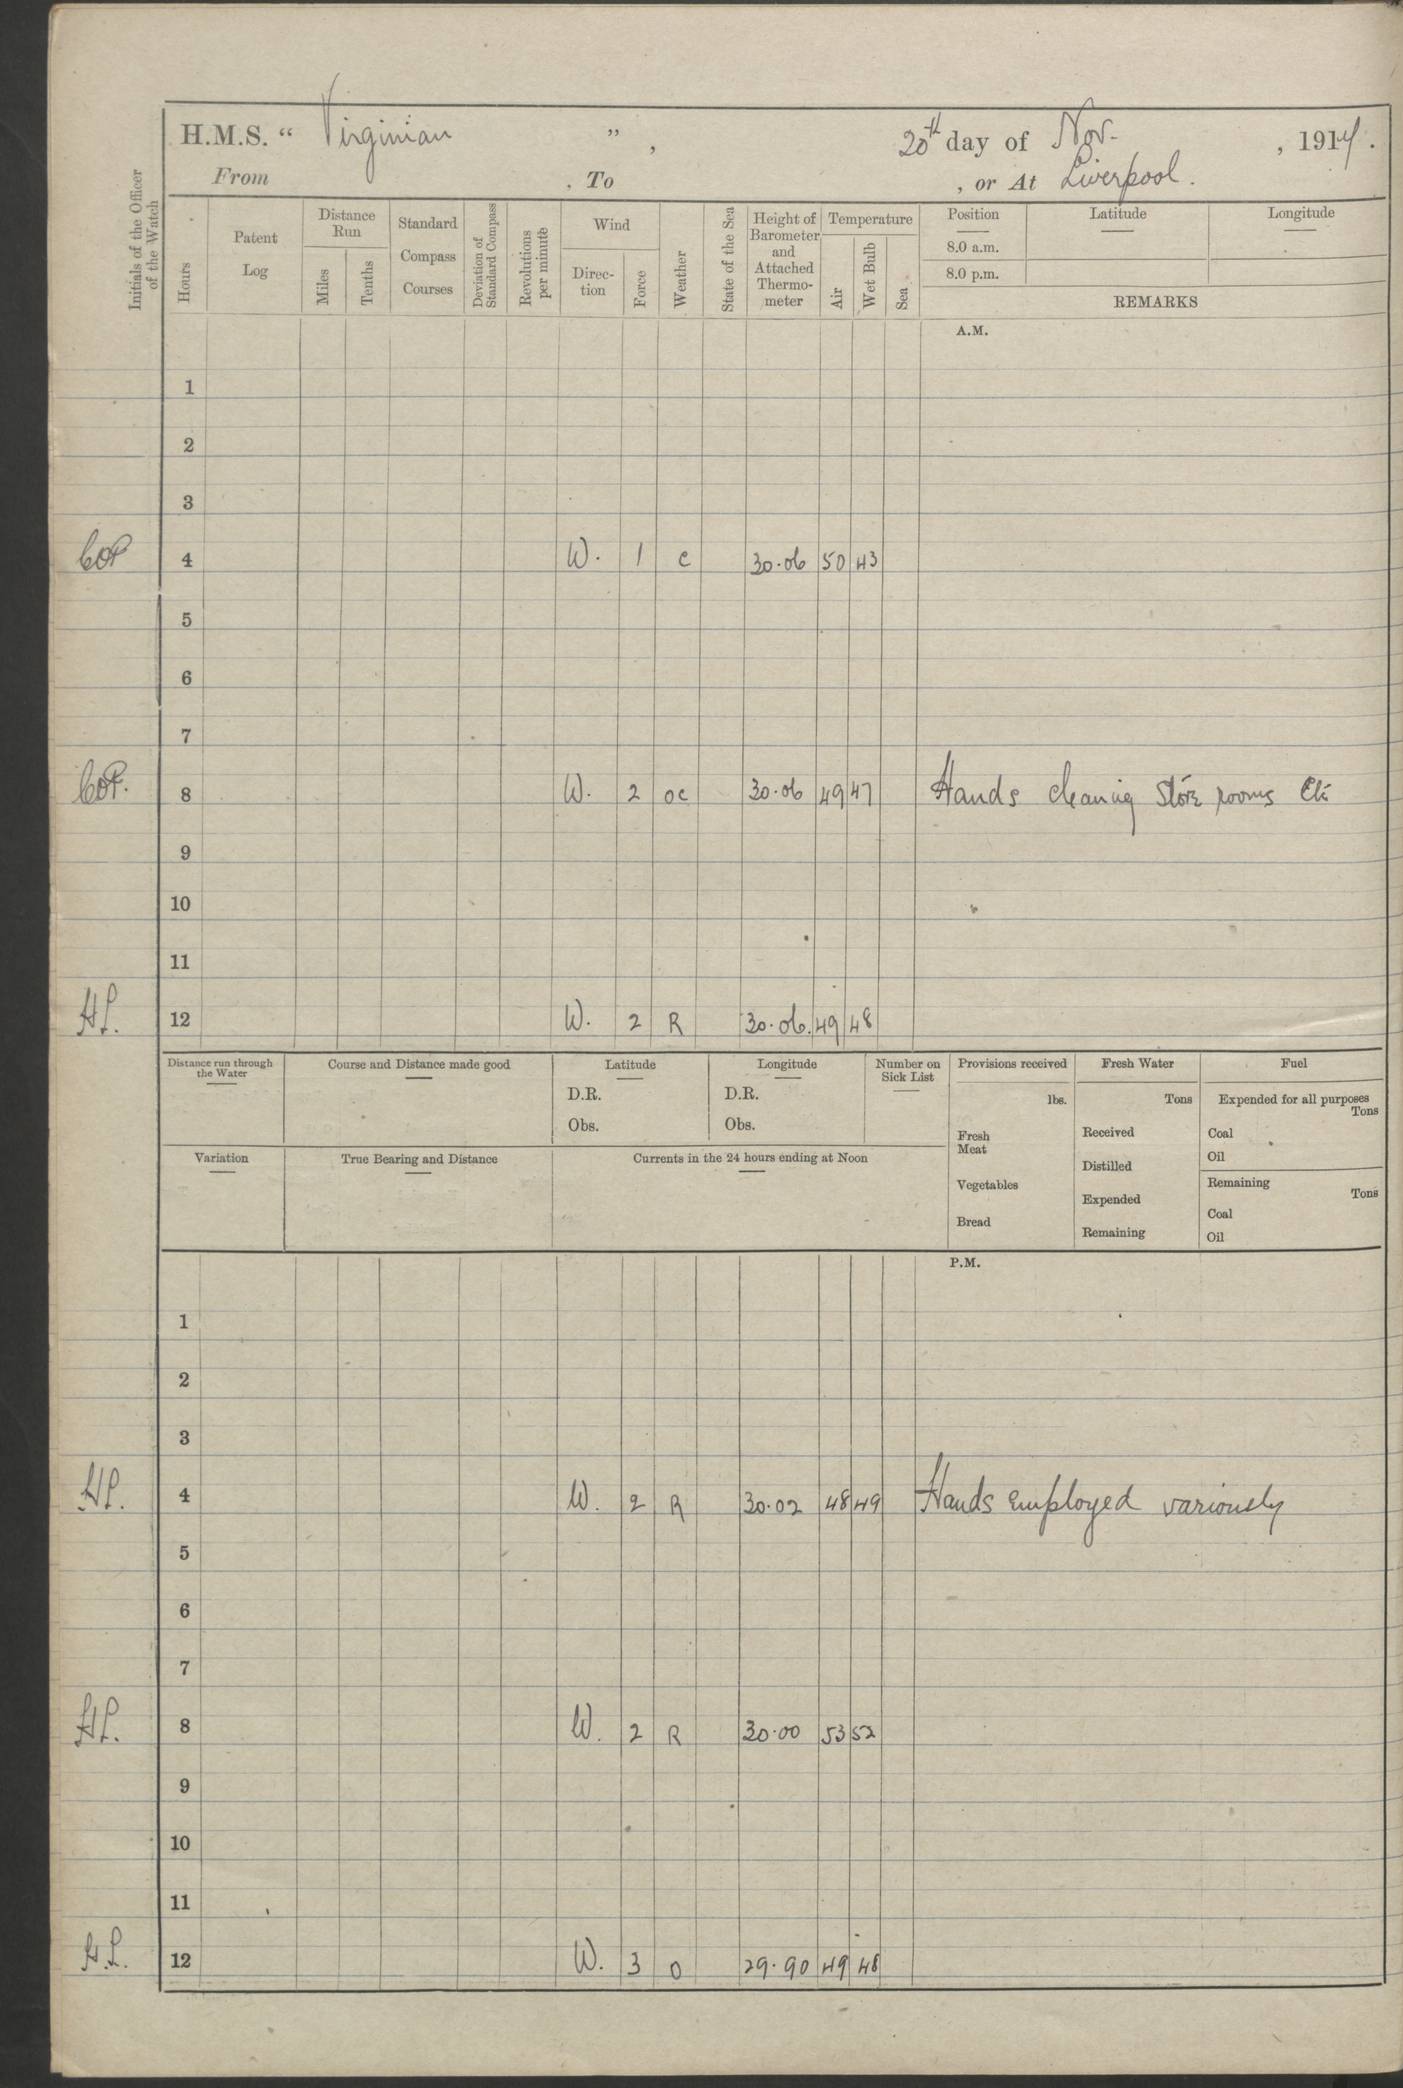 H.M.S. “ Virginian ” , 20th day of Nov. , 1914.
From , To , or At Liverpool.
Initials of the Officer of the Watch
Hours
Patent Log
Distance Run
Miles
Tenths
Standard Compass Courses
Deviation of Standard Compass
Revolutions per minute
Wind
Direc-tion
Force
Weather
State of the Sea
Height of Barometer and Attached Thermo-meter
Temperature
Air
Wet Bulb
Sea
Position Latitude Longitude
8.0 a.m.
8.0 p.m.
REMARKS
A.M.
1
2
3
4 W. 1 c 30.06 50 43
5
6
7
8 W. 2 oc 30.06 49 47 Hands cleaning Store rooms Etc
9
10
11
H.L. 12 W. 2 R 30.06. 49 48
Distance run through the Water
Course and Distance made good
Latitude
D.R.
Obs.
Longitude
D.R.
Obs.
Number on Sick List
Provisions received
lbs.
Fresh Meat
Vegetables
Bread
Fresh Water
Tons
Received
Distilled
Expended
Remaining
Fuel
Expended for all purposes
Tons
Coal
Oil
Remaining
Tons
Coal
Oil
Variation
True Bearing and Distance
Currents in the 24 hours ending at Noon
P.M.
1
2
3
H.L. 4 W. 2 R 30.02 48 49 Hands employed variously
5
6
7
H.L. 8 W. 2 R 30.00 53 52
9
10
11
H.L. 12 W. 3 O 29.90 49 48